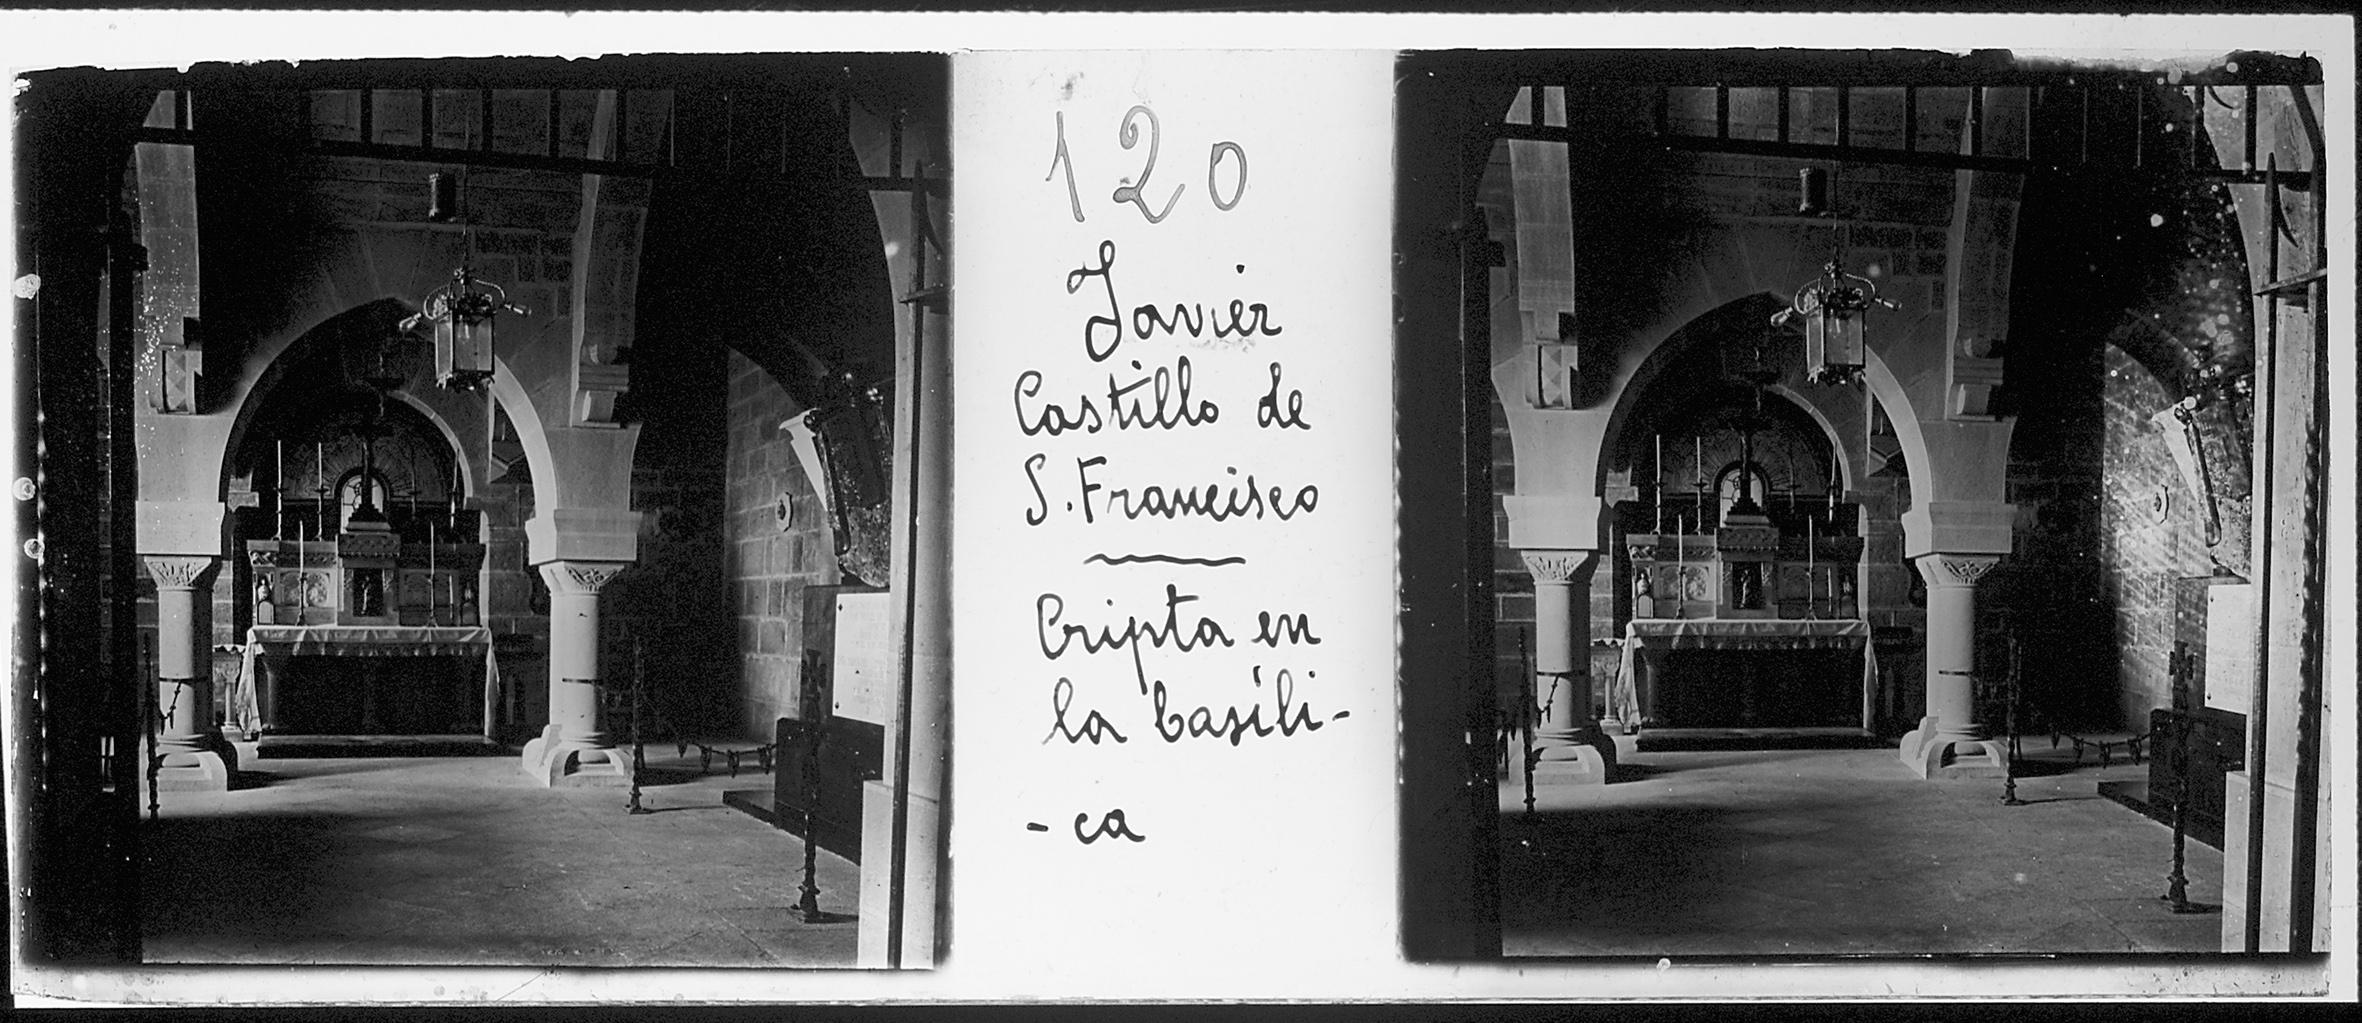 120
Javier
Castillo de
S. Francisco
Cripta en
la basíli-
- ca